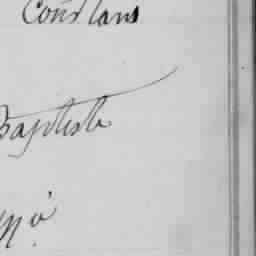 Constans
Baptiste